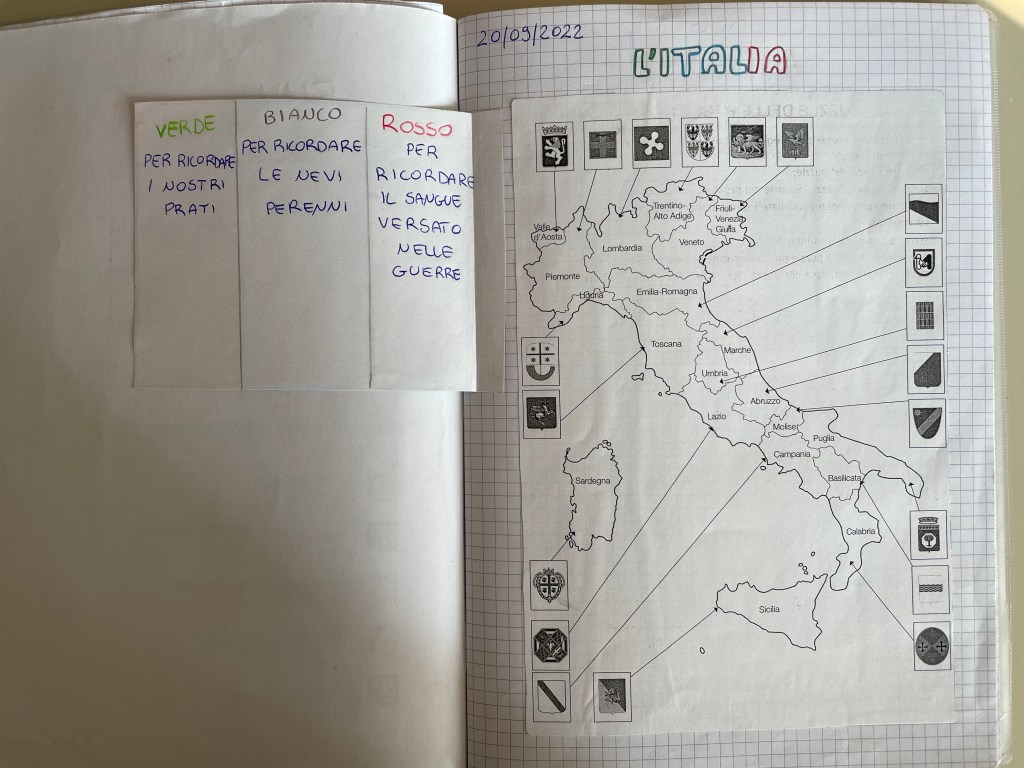 VERDE
PER RICORDARE
I NOSTRI
PRATI
BIANCO
PER RICORDARE
LE NEVI
PERENNI
ROSSO
PER
RICORDARE
IL SANGUE
VERSATO
NELLE
GUERRE
20/09/2022
L'ITALIA
Trentino-
Alto Adige
Friuli-
Venezia
Giulia
Valle
d'Aosta
Lombardia
Veneto
Piemonte
Emilia-Romagna
Liguria
Toscana
Marche
Umbria
Abruzzo
Lazio
Molise
Puglia
Campania
Basilicata
Sardegna
Calabria
Sicilia